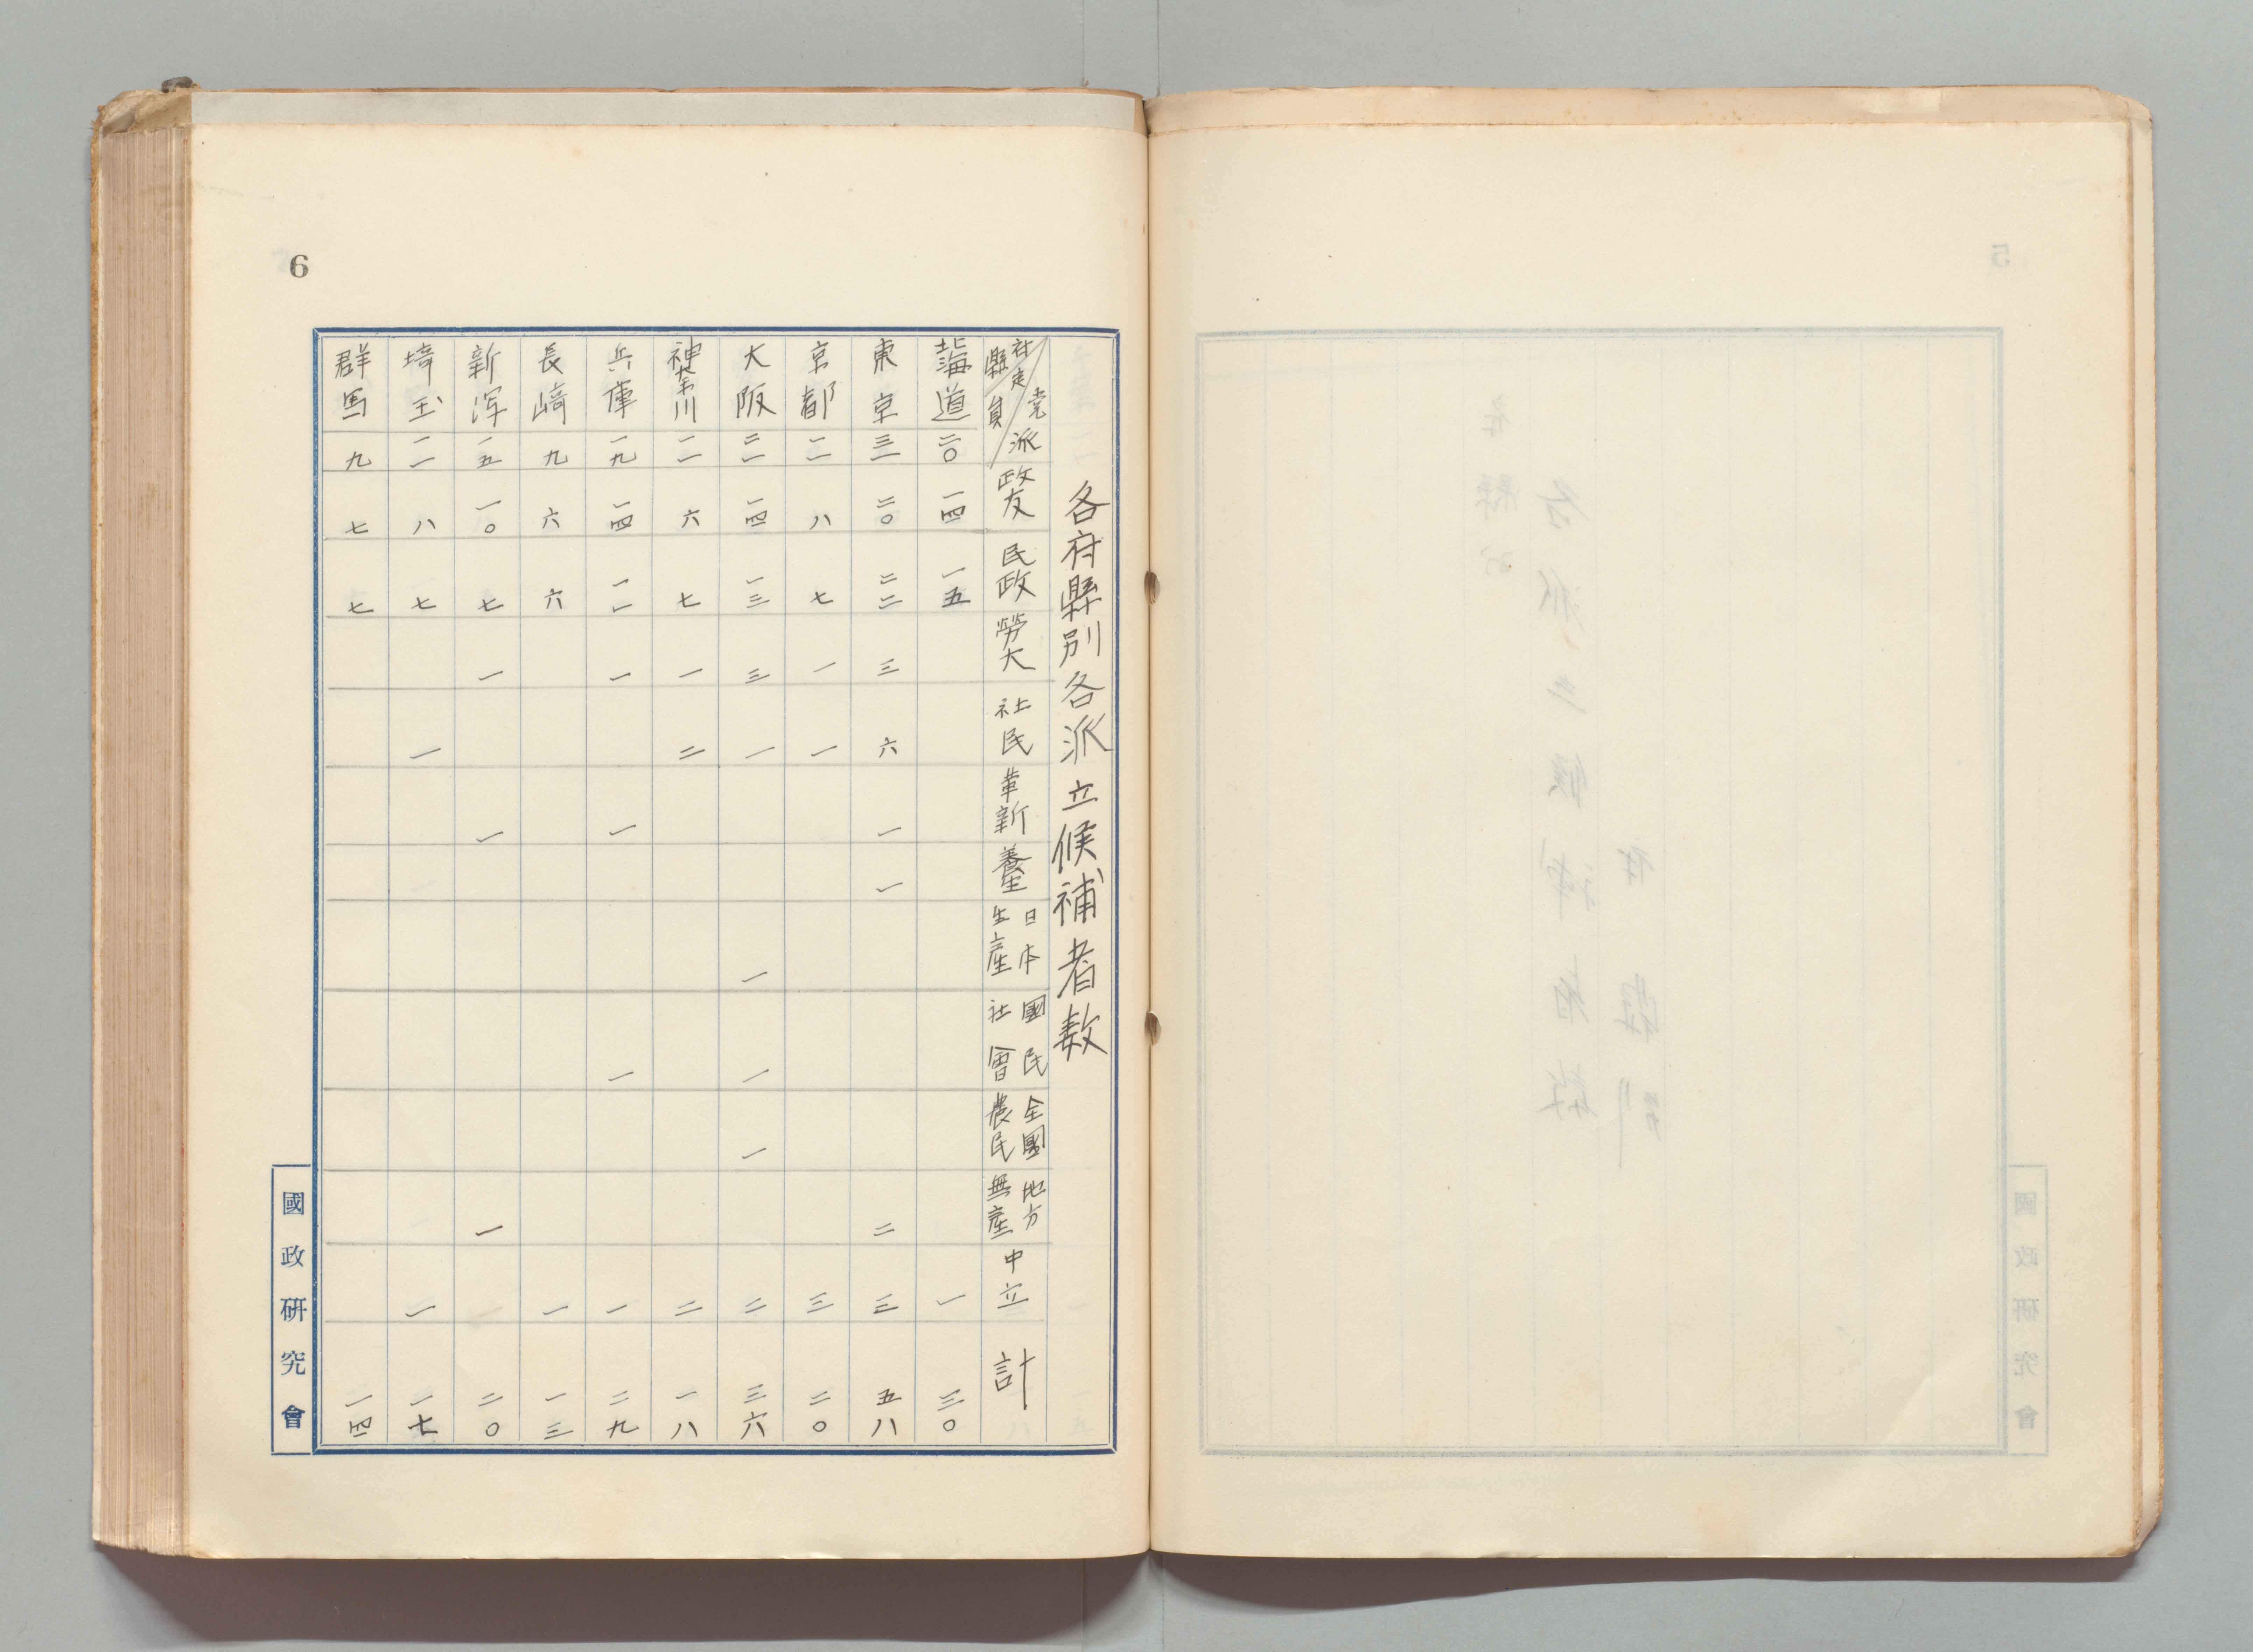 各府縣別各派立候補者数
府縣 定員 党派 政友 民政 勞大 社民 革新 養生 日本生產 國民社會 全國農民 地方無產 中立 計
北海道 二〇 一四 一五 一 三〇
東京 三一 二〇 二二 三 六 一 一 二 三 五八
京都 一一 八 七 一 一 三 二〇
大阪 二一 一四 一三 三 一 一 一 一 二 三六
神奈川 一一 六 七 一 二 二 一八
兵庫 一九 一四 一一 一 一 一 一 二九
長崎 九 六 六 一 一三
新泻 一五 一〇 七 一 一 一 二〇
埼玉 一一 八 七 一 一 一七
群馬 九 七 七 一四
國政研究會
6